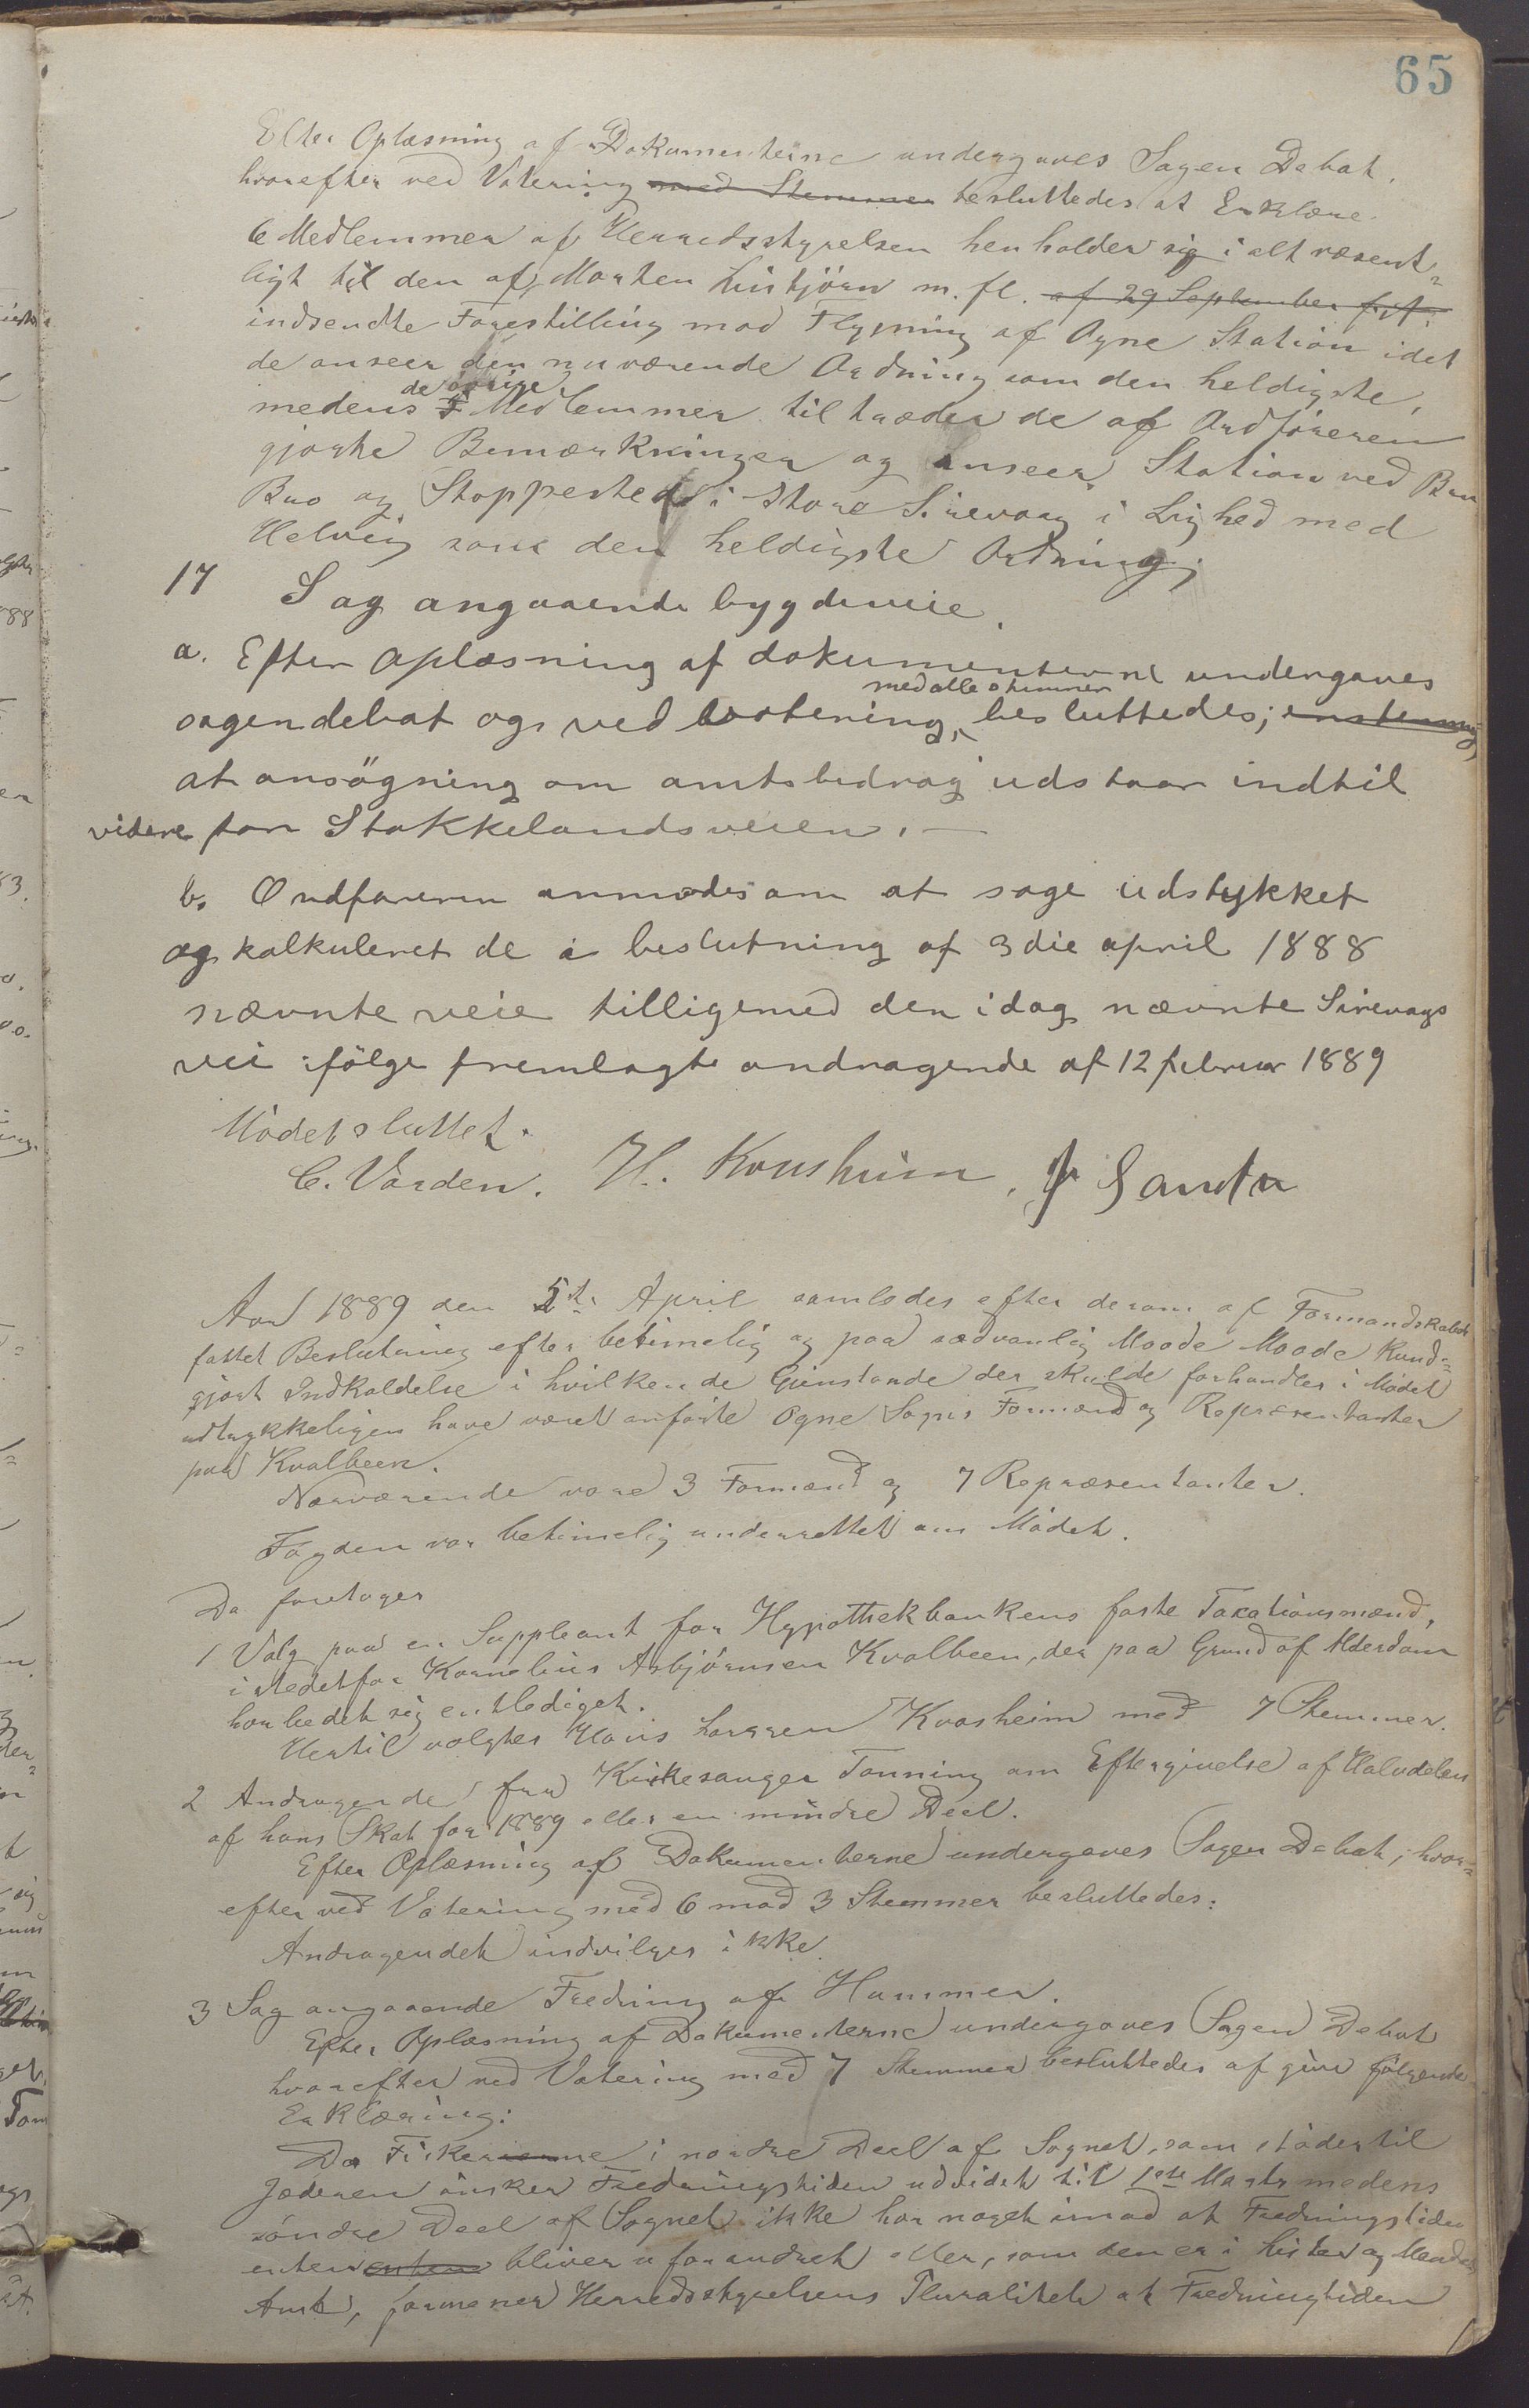 65
Efter Oplæsning af Dokumenterne undergaves Sagen Debat,
hvorefter ved Votering med Stemmer besluttedes at Erklære
6 Medlemmer af Herredsstyrelsen henholder sig i alt væsent-
ligt til den af Morten m. fl. af 29 September f. A.
indsendte Forestilling mod Flytning af Ogne Station idet
de anseer den nuværende Ordning som den heldigste,
de øvrige
medens 7 Medlemmer tiltræder de af Ordføreren
gjorte Bemærkninger og anseer Station ved Bru
Bro og Stoppested i Store Sirevaag i Lighed med
Helvig som den heldigste Ordning;
17 Sag angaaende bygdeveie.
a. Efter oplæsning af dokumenterne undergaves
med alle stemmer
sagen debat og ved votering, besluttedes; enstemmig,
at ansögning om amtsbidrag udstaar indtil
videre for Stokkelandsveien. —
b. Ordføreren anmodes om at søge udstykket
og kalkuleret de i beslutning af 3die april 1888
nævnte veie tilligemed den idag nævnte Sirevags
vei ifölge fremlagte andragende af 12 februar 1889
Mödet sluttet.
C. Varden. H. Kvasheim, Sandtn
Aar 1889 den 5te April samledes efter derom af Formandskabet
fattet Beslutning efter betimelig og paa sædvanlig Maade Maade Kund-
gjort Indkaldelse i hvilken de Gjenstande der skulde forhandles i Mödet
udtrykkeligen have været anförte Ogne Sogns Formænd og Repræsentanter
paa Kvalbeen.
Nærværende vare 3 Formænd og 7 Repræsentanter.
Fogden var betimelig underrettet om Mödet.
Da foretoges
1 Valg paa en Suppleant for Hypothekbankens faste Taxationsmænd,
i stedetfor Kornelius Asbjörnsen Kvalbeen, der paa Grund af Alderdom
har bedet sig entlediget.
Hertil valgtes Hans Larsen Kvasheim med 7 Stemmer.
2 Andragende fra Kirkesanger Tonning om Eftergivelse af Halvdelen
af hans Skat for 1889 eller en mindre Deel.
Efter Oplæsning af Dokumenterne undergaves Sagen Debat, hvor-
efter ved Votering med 6 mod 3 Stemmer besluttedes:
Andragendet indvilges ikke.
3 Sag angaaende Fredning af Hummer.
Efter Oplæsning af Dokumenterne undergaves Sagen Debat
hvorefter ved Votering med 7 Stemmer besluttedes af give fölgende
Erklæring:
Da Fiskerierne i nordre Deel af Sognet, som stöder til
Jæderen önsker Fredningstiden udvidet til 1ste Marts medens
söndre Deel af Sognet ikke har noget imod at Fredningstiden
enten enten bliver uforandret eller, som den er i Lister og Mandals
Amt, formener Herredsstyrelsens Pluralitet at Fredningstiden